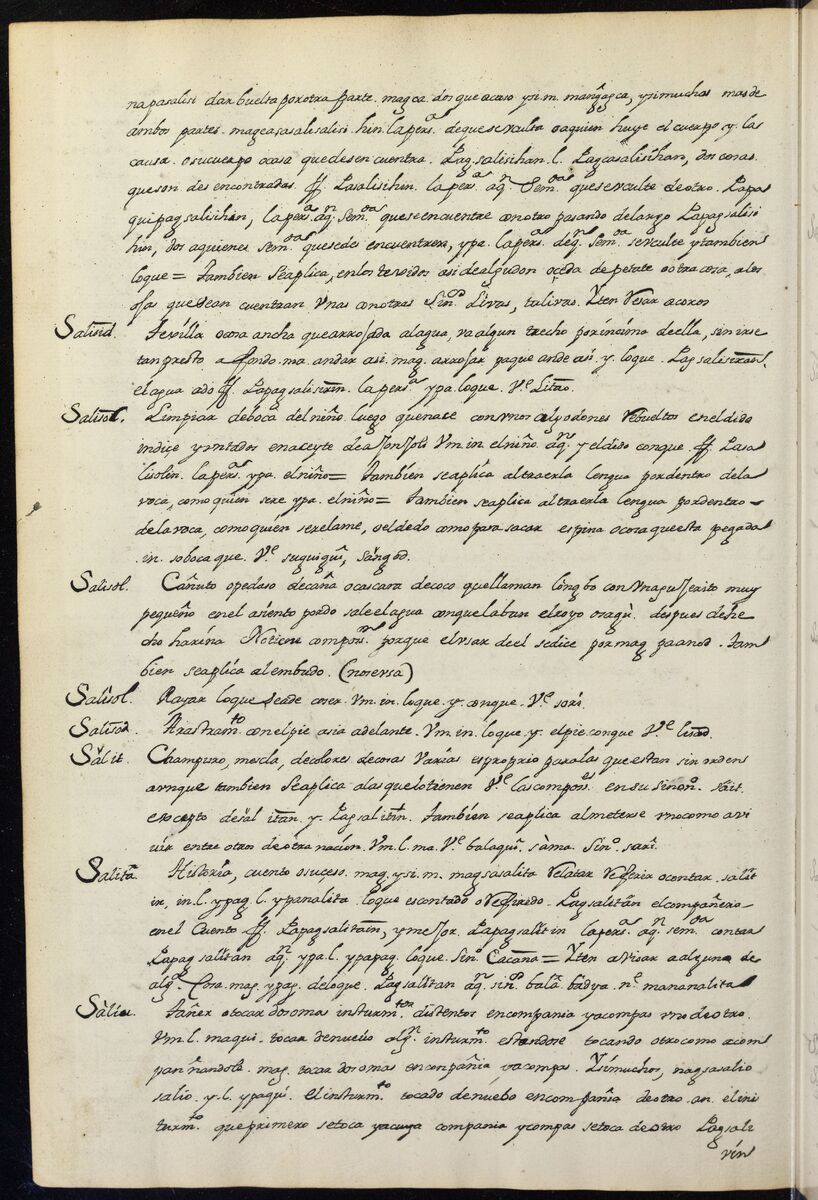 napasalisi dar buelta por otra parte. mag ca. dos que acaso y si. m. mangagca, y si muchos mas de
ambos partes. mageasasalisalisi. hin. la pers.ª de que se reculta o aquien huye el cuerpo y. las
causa. o su cuerpo o cosa que desen cuentra. Pag salisihan. l. Pagcasalisihan, dos cosas.
que son des encontradas. ff. Pasalisihin. la pers.ª aq.ⁿ Sem.ᵒᵃ que se reculte de otro. Papa
qui pag salisihin, la pers.ª aq.ⁿ sem.ᵒᵃ que se encuentre con otro pasando de largo Papagsalisi
hin, dos a quienes sem.ᵒᵃ que se des encuentren, ypa. la pers.ª deq.ⁿ sem.ᵒᵃ se reculte y tambien
loque = tambien se aplica, en los texidos asi de algudon o seda de petate o otra cosa, a las
que sean cuentran unas con otras Sin.ᵒ Livas, talivas. Yten Vesar a coxos
Salisid. Texilla o cosa ancha que arrojada al agua, va algun trecho por incima de ella, sin irse
tan presto a fondo. ma. andar asi. mag. arrojar paque ande asi. y. loque. Pag salisiran.
el agua ado ff. Papagsalisirin. la pers.ª ypa. loque. V.ᵉ Litao.
Salisol. Limpiar de boca del niño luego que nace con unos algodones rebueltos en el dido
indice y untados en aceyte de ajonjoli Vm. in. el niño. aq.ⁿ y el dido conque. ff. Pasa
lisolin. la pers.ª ypa. el niño = tambien se aplica al traer la lengua por dentro dela
voca, como quien se re ypa. el niño = tambien se aplica al traer la lengua por dentro =
de la voca, como quien se relame, o el dedo como para sacar espina o cosa que esta pegada
in. so boca que. V.ᵉ suquiqui, sangod.
Salisol. Cañuto o pedaso de caña o cascara de coco que llaman longbo con un agujerito muy
pequeño en el asiento por do sale el agua con que laban el royo o sagù. despues de he
cho harina No tiene compos.ⁿ porque el usar de el se dice por mag pa anod. tam
bien se aplica al embudo. (no se usa)
Salisol. Rayar loque se ade coser. Vm. in. loque. y. conque. V.ᵉ soris.
Salisod. Arastram.ᵗᵒ con el pie asia adelante. Vm. in. loque. y. el pie conque V.ᵉ lisod.
Salit. Champuro, mescla, de colores de cosas varias es proprio para las que estan sin orden
aunque tambien se aplica a las que lo tienen V.ᵉ las compos.ᵉˢ en su sinon.ᵒ sait.
escepto de sal itan. y. Pag salitin. tambien se aplica al meterse uno como a vi
vir entre otros de otra nacion. Vm. l. ma. V.ᵉ balaqui. sama. Sin.ᵒ sari.
Salita. Historia, cuento o suceso. mag. y si. m. magsasalita Relatar Referir o contar. salit
ir, in. l. ypag. l. ypanalita. loque es cantado o referido. Pagsalitan el compañero
en el Cuento ff. Papagsalitain, y mejor. Papagsalitin la pers.ª aq.ⁿ sem.ᵒᵃ contar
Papag salitan aq.ⁿ ypa. l. ypapag. loque. Sin.ᵒ Cacana = Yten avisar a alguno de
alg.ª Cosa. mag. ypag. de loque. Pag salitan aq.ⁿ sin.ᵒ bala. badya. n.ᵉ mananalita
Salio. Tañer o tocar dos o mas insturm.ᵗᵒˢ distentos en compania y a compas uno de otro.
Vm. l. maqui. tocar de nuevo alg.ⁿ insturm.ᵗᵒ estandose tocando otro como acom
panñandole. mag. tocar dos o mas en conpañia, y a compas. Y si muchos, nagsasalio
salio. y. l. ypaqui. el insturm.ᵗᵒ tocado de nuebo en compañia de otro. an. el ins
turm.ᵗᵒ que primero se toca y a cuya compania y compas se toca de otro Pagsali
vin